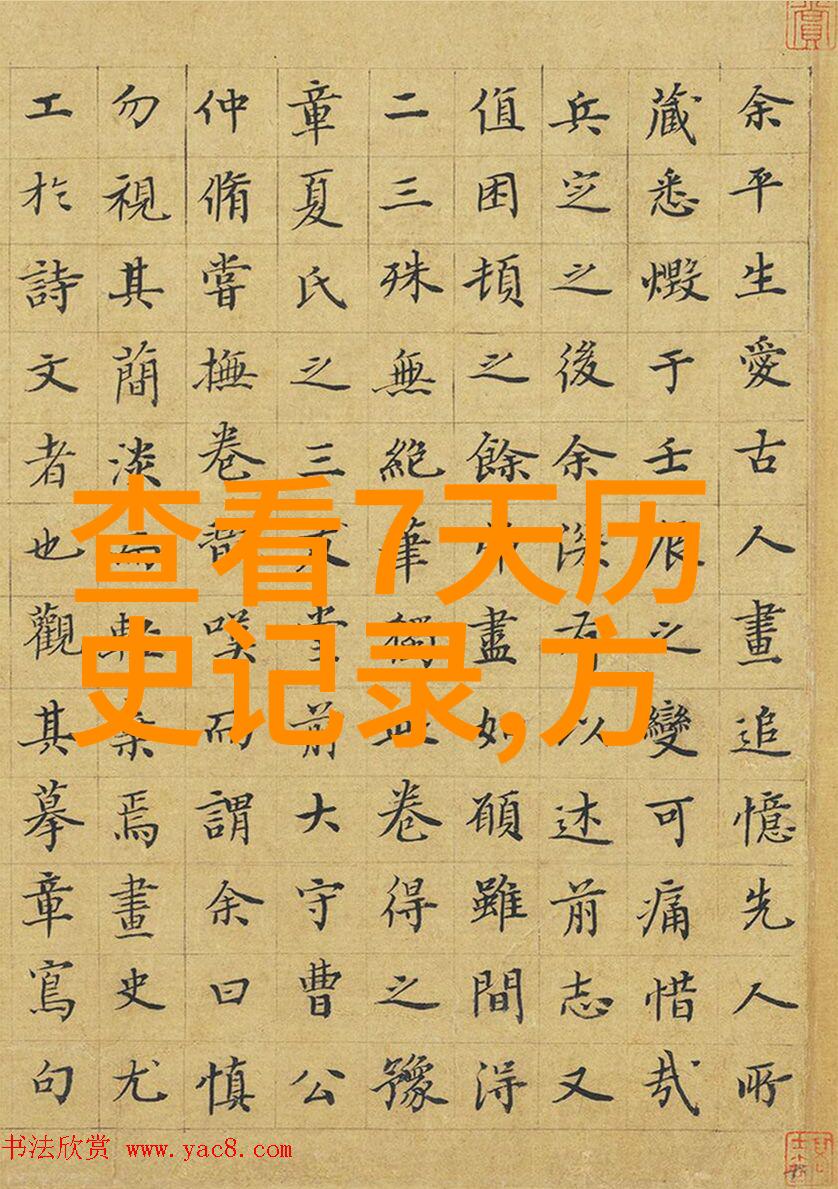 余平生愛古人畫追憶先人所
藏悉燬于壬辰之變可痛惜哉
兵定之後余深有以述前志又
值困頓之餘盡如願雖間得
二三殊無絕筆獨此卷得之豫
章夏氏之三友堂前大守曹公
仲脩嘗撫卷嘆而謂余曰慎
勿視其簡淡而輕棄焉畫史尤
工於詩文者也觀其摹章寫句
查看7天历
史记录,方
书法欣赏 www.yac8.com